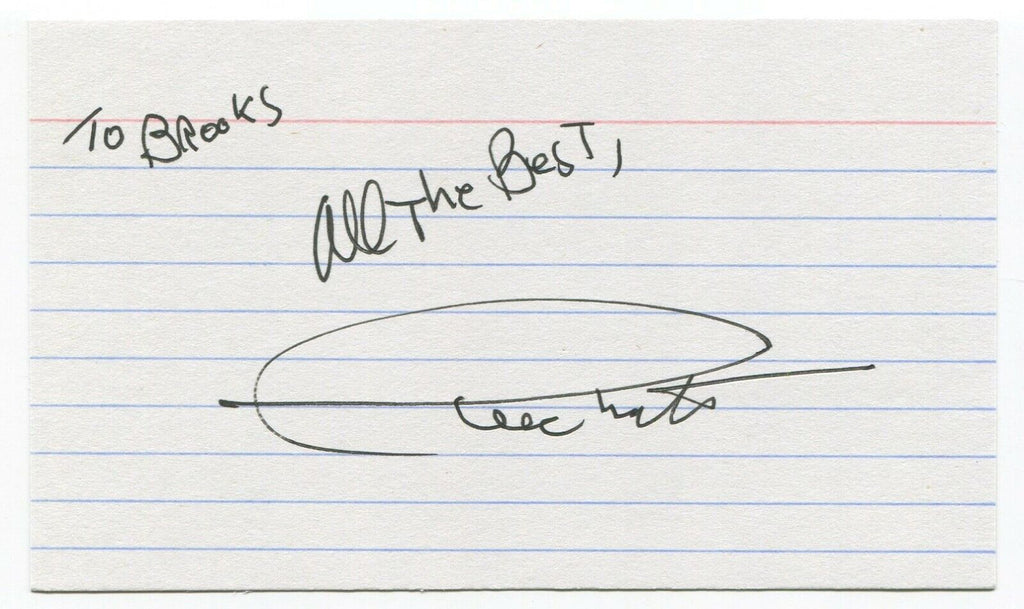 To Brooks
All The Best,